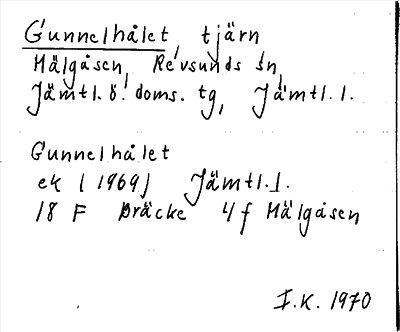 Gunnelhålet, tjärn
Mälgåsen, Revsunds sn,
Jämtl. ö. doms. tg, Jämtl. l.
Gunnelhålet
ek (1969) Jämtl. l.
18 F Bräcke 4f Mälgåsen
I.K. 1970